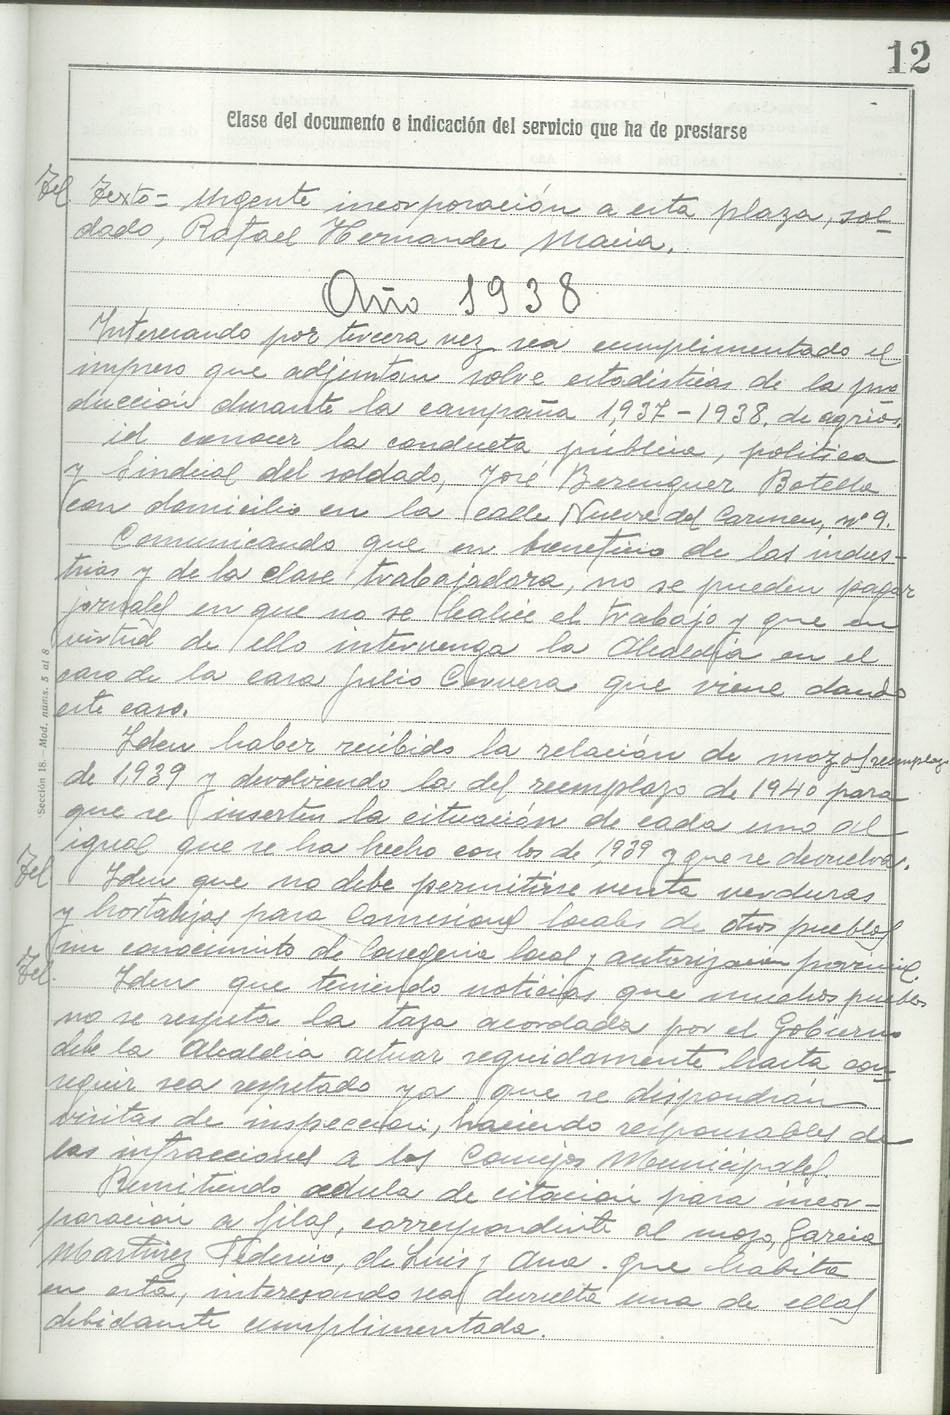 12
Clase del documento e indicación del servicio que ha de prestarse
Tel. Texto = Urgente incorporación a esta plaza, sol-
dado, Rafael Hernandez Macia.
Año 1938
Interesando por tercera vez sea cumplimentado el
impreso que adjuntan sobre estadisticas de la pro
ducción durante la campaña 1,937-1938, de agrios.
id conocer la conducta pública, politica
y Sindical del soldado, José Berenguer Botella
con domicilio en la calle Nueve del Carmen, nº 9.
Comunicando que en beneficio de las indus-
trias y de la clase trabajadora, no se pueden pagar
jornales en que no se realice el trabajo y que en
virtud de ello intervenga la Alcaldia en el
caso de la casa Julio Cervera que viene dando
este caso.
Iden haber recibido la relación de mozos reemplazo
de 1,939 y devolviendo la del reemplazo de 1940 para
que se inserten la situación de cada uno al
igual que se ha hecho con los de 1,939 y que se devuelva.
Tel Iden que no debe permitirse venta verduras
y hortalizas para Comisiones locales de otros pueblos
sin conocimito de Consegeria local y autorizacion provincial.
Tel. Iden que teniendo noticias que muchos pueblos
no se respeta la taza acordada por el Gobierno
debe la Alcaldia actuar seguidamente hasta con-
seguir sea respetado ya que se dispondrán
visitas de inspeccion, haciendo responsables de
las infracciones a los Consejos Municipales.
Remitiendo cedula de citación para incor-
poracion a filas, correspondiente al mozo, Garcia
Martinez Federico, de Luis y Ana. que habita
en esta, interesando sea devuelta una de ellas
debidante cumplimentada.
Sección 18.—Mod. núms. 5 al 8